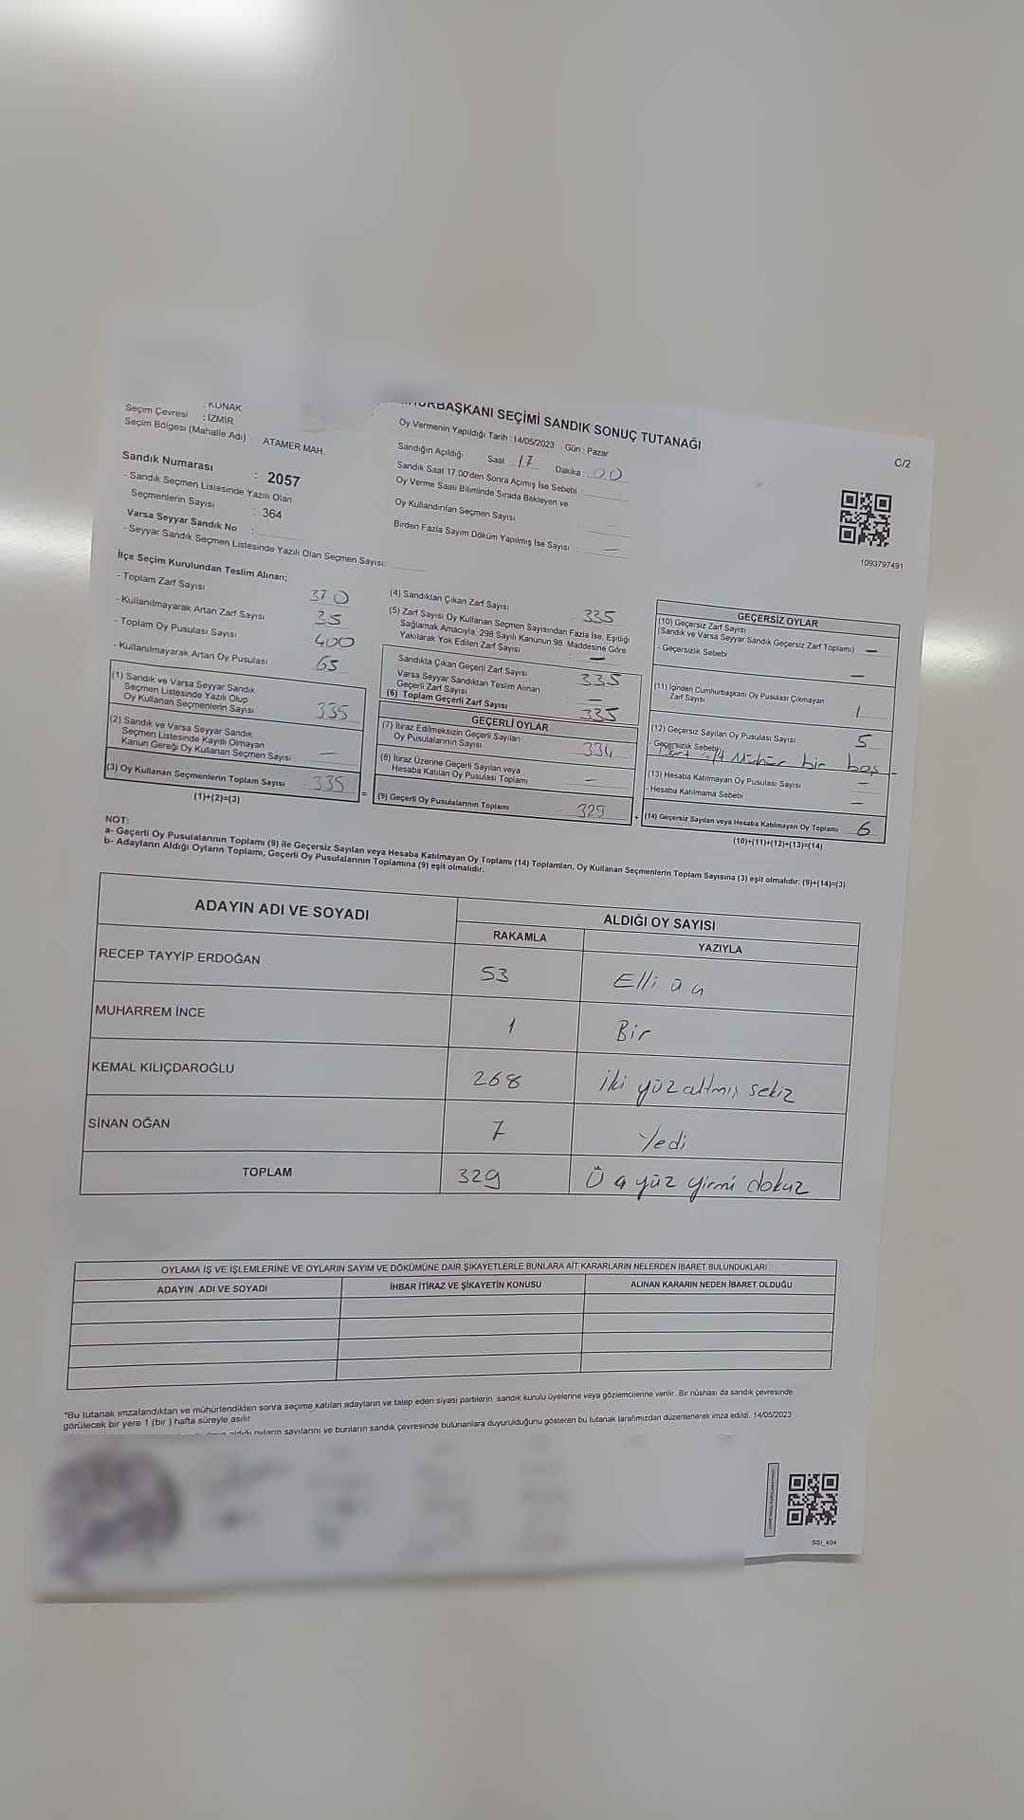 : KONAK
Seçim Çevresi : İZMİR
Seçim Bölgesi (Mahalle Adı) ATAMER MAH.
Sandık Numarası : 2057
- Sandık Seçmen Listesinde Yazılı Olan
Seçmenlerin Sayısı : 364
Varsa Seyyar Sandık No :
- Seyyar Sandık Seçmen Listesinde Yazılı Olan Seçmen Sayısı:
BAŞKANI SEÇİMİ SANDIK SONUÇ TUTANAĞI
Oy Vermenin Yapıldığı Tarih : 14/05/2023 Gün : Pazar
Sandığın Açıldığı Saat 17 Dakika : 00
Sandık Saat 17.00'den Sonra Açmış İse Sebebi
Oy Verme Saati Bitiminde Sırada Bekleyen ve
Oy Kullandırılan Seçmen Sayısı
Birden Fazla Sayım Döküm Yapılmış İse Sayısı —
C/2
1093797491
İlçe Seçim Kurulundan Teslim Alınan;
- Toplam Zarf Sayısı 370
- Kullanılmayarak Artan Zarf Sayısı 35
- Toplam Oy Pusulası Sayısı 400
- Kullanılmayarak Artan Oy Pusulası 65
(1) Sandık ve Varsa Seyyar Sandık
Seçmen Listesinde Yazılı Olup
Oy Kullanan Seçmenlerin Sayısı 335
(2) Sandık ve Varsa Seyyar Sandık
Seçmen Listesinde Kayıtlı Olmayan
Kanun Gereği Oy Kullanan Seçmen Sayısı : —
(3) Oy Kullanan Seçmenlerin Toplam Sayısı : 335
(1)+(2)=(3)
(4) Sandıktan Çıkan Zarf Sayısı 335
(5) Zarf Sayısı Oy Kullanan Seçmen Sayısından Fazla İse, Eşitliği
Sağlamak Amacıyla, 298 Sayılı Kanunun 98. Maddesine Göre
Yakılarak Yok Edilen Zarf Sayısı : —
Sandıkta Çıkan Geçerli Zarf Sayısı 335
Varsa Seyyar Sandıktan Teslim Alınan
Geçerli Zarf Sayısı —
(6) Toplam Geçerli Zarf Sayısı 335
GEÇERLİ OYLAR
(7) İtiraz Edilmeksizin Geçerli Sayılan
Oy Pusulalarının Sayısı 334
(8) İtiraz Üzerine Geçerli Sayılan veya
Hesaba Katılan Oy Pusulası Toplamı —
= (9) Geçerli Oy Pusulalarının Toplamı 329
GEÇERSİZ OYLAR
(10) Geçersiz Zarf Sayısı
(Sandık ve Varsa Seyyar Sandık Geçersiz Zarf Toplamı) —
- Geçersizlik Sebebi —
(11) İçinden Cumhurbaşkanı Oy Pusulası Çıkmayan
Zarf Sayısı 1
(12) Geçersiz Sayılan Oy Pusulası Sayısı 5
- Geçersizlik Sebebi: Mühür bir boş
(13) Hesaba Katılmayan Oy Pusulası Sayısı —
- Hesaba Katılmama Sebebi —
+ (14) Geçersiz Sayılan veya Hesaba Katılmayan Oy Toplamı 6
(10)+(11)+(12)+(13)=(14)
NOT:
a- Geçerli Oy Pusulalarının Toplamı (9) ile Geçersiz Sayılan veya Hesaba Katılmayan Oy Toplamı (14) Toplamları, Oy Kullanan Seçmenlerin Toplam Sayısına (3) eşit olmalıdır. (9)+(14)=(3)
b- Adayların Aldığı Oyların Toplamı, Geçerli Oy Pusulalarının Toplamına (9) eşit olmalıdır.
ADAYIN ADI VE SOYADI ALDIĞI OY SAYISI
RAKAMLA YAZIYLA
RECEP TAYYİP ERDOĞAN 53 Elli üç
MUHARREM İNCE 1 Bir
KEMAL KILIÇDAROĞLU 268 iki yüz altmış sekiz
SİNAN OĞAN 7 Yedi
TOPLAM 329 Üç yüz yirmi dokuz
OYLAMA İŞ VE İŞLEMLERİNE VE OYLARIN SAYIM VE DÖKÜMÜNE DAİR ŞİKAYETLERLE BUNLARA AİT KARARLARIN NELERDEN İBARET BULUNDUKLARI
ADAYIN ADI VE SOYADI İHBAR İTİRAZ VE ŞİKAYETİN KONUSU ALINAN KARARIN NEDEN İBARET OLDUĞU
*Bu tutanak imzalandıktan ve mühürlendikten sonra seçime katılan adayların ve talep eden siyasi partilerin sandık kurulu üyelerine veya gözlemcilerine verilir. Bir nüshası da sandık çevresinde
görülecek bir yere 1 (bir) hafta süreyle asılır.
aldığı oyların sayılarını ve bunların sandık çevresinde bulunanlara duyurulduğunu gösteren bu tutanak tarafımızdan düzenlenerek imza edildi. 14/05/2023